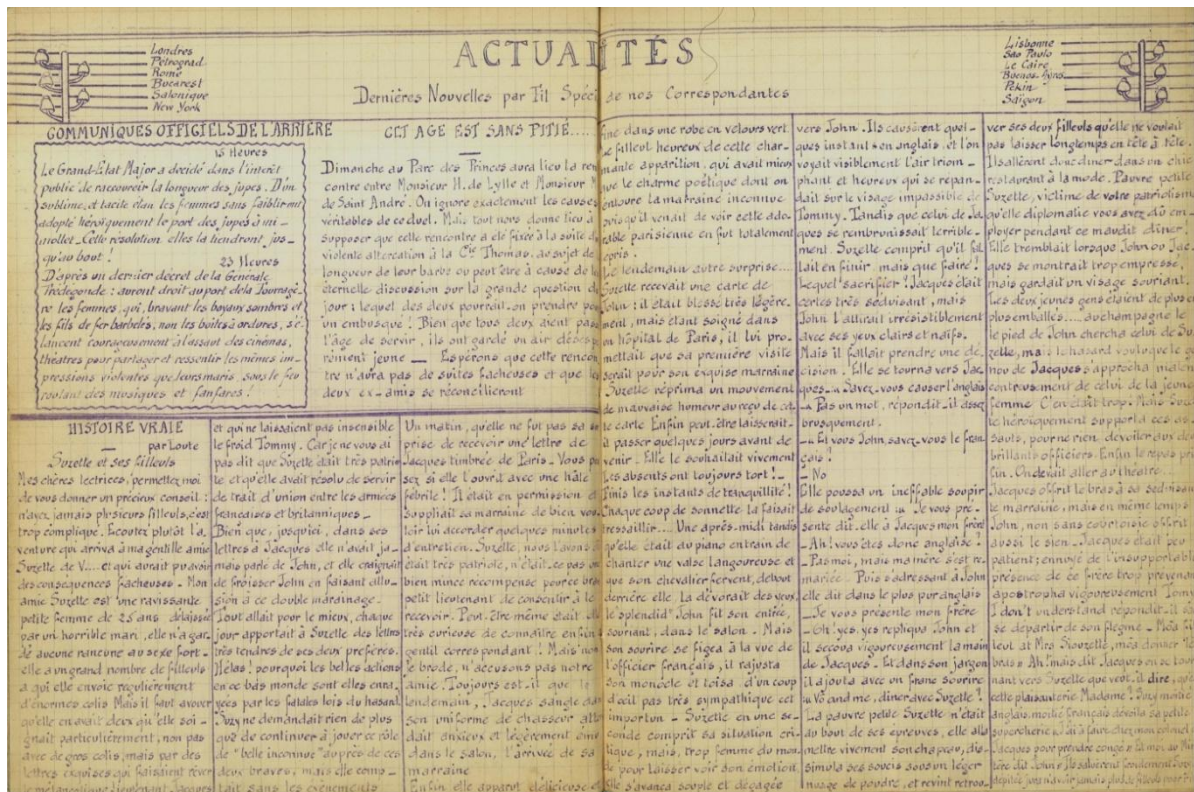 Londres
Petrograd
Rome
Bucarest
Salonique
New York
ACTUALITÉS
Dernières Nouvelles par Fil Spécial de nos Correspondantes
Lisbonne
Sao Paulo
Le Caire
Buenos-Ayres
Pékin
Saïgon
COMMUNIQUES OFFICIELS DE L'ARRIÈRE
15 Heures
Le Grand-Etat Major a décidé dans l'intérêt
public de raccourcir la longueur des jupes. D'un
sublime et tacite élan les femmes sans faiblir ont
adopté héroïquement le port des jupes à mi-
mollet. Cette résolution elles la tiendront jus-
qu'au bout !
23 Heures
D'après un dernier décret de la Générale
Fredegonde : auront droit au port de la fourragè-
re les femmes, qui, bravant les boyaux sombres et
les fils de fer barbelés, non les boîtes à ordures, s'é-
lancent courageusement à l'assaut des cinémas,
théâtres pour partager et ressentir les mêmes im-
pressions violentes que leurs maris, sous le feu
roulant des musiques et fanfares !
CET AGE EST SANS PITIÉ....
Dimanche au Parc des Princes aura lieu la ren
contre entre Monsieur H. de Lylle et Monsieur M
de Saint André. On ignore exactement les causes
véritables de ce duel. Mais tout nous donne lieu à
supposer que cette rencontre a été fixée à la suite d
violente altercation à la Cie Thomas, au sujet de
longueur de leur barbe ou peut être à cause de l
éternelle discussion sur la grande question d
jour : lequel des deux pourrait-on prendre pou
un embusqué ! Bien que tous deux aient pas
l'âge de servir, ils ont gardé un air désesp
rément jeune — Espérons que cette rencon
tre n'aura pas de suites facheuses et que les
deux ex-amis se réconcilieront
HISTOIRE VRAIE
par Loute
Suzette et ses filleuls
Mes chères lectrices, permettez moi
de vous donner un précieux conseil :
n'ayez jamais plusieurs filleuls, c'est
trop compliqué. Ecoutez plutôt l'a
venture qui arriva à ma gentille amie
Suzette de V.... et qui aurait pu avoir
des conséquences facheuses. Mon
amie Suzette est une ravissante
petite femme de 25 ans délaissée
par un horrible mari, elle n'a gar
dé aucune rancune au sexe fort.
elle a un grand nombre de filleuls
a qui elle envoie régulièrement
d'énormes colis Mais il faut avouer
qu'elle en avait deux qu'elle soi-
gnait particulièrement, non pas
avec de gros colis, mais par des
lettres exquises qui faisaient rêver
le mélancolique lieutenant Jacques
et qui ne laissaient pas insensible
le froid Tommy. Car je ne vous ai
pas dit que Suzette était très patrio
te et qu'elle avait résolu de servir
de trait d'union entre les armées
françaises et britanniques.
Bien que, jusqu'ici, dans ses
lettres à Jacques elle n'avait ja-
mais parlé de John, et elle craignait
de froisser John en faisant allu-
sion à ce double marainage.
Tout allait pour le mieux, chaque
jour apportait à Suzette des lettres
très tendres de ses deux préférés.
Hélas ! pourquoi les belles actions
en ce bas monde sont elles enra,
yées par les fatales lois du hasard
Suzy ne demandait rien de plus
que de continuer à jouer ce rôle
de "belle inconnue" auprès de ces
deux braves, mais elle comp-
tait sans les évènements
Un matin, qu'elle ne fut pas sa su
prise de recevoir une lettre de
Jacques timbrée de Paris. Vous pen
sez si elle l'ouvrit avec une hâte
fébrile ! Il était en permission et
suppliait sa marraine de bien vou
loir lui accorder quelques minutes
d'entretien. Suzette, nous l'avons
était très patriote, n'était-ce pas un
bien mince récompense pour ce brav
petit lieutenant de consentir à le
recevoir. Peut-être même était elle
très curieuse de connaître enfin
gentil correspondant ! Mais non
je brode, n'accusons pas notre
amie. Toujours est-il que le
lendemain, Jacques sanglé dans
son uniforme de chasseur atten
dait anxieux et légèrement ému
dans le salon, l'arrivée de sa
marraine
Enfin elle apparut délicieuse et
fine dans une robe en velours vert
Le filleul heureux de cette char-
mante apparition, qui avait mieux
que le charme poétique dont on
entoure la marraine inconnue
puisqu'il venait de voir cette ado-
rable parisienne en fut totalement
épris.
Le lendemain autre surprise....
Suzette recevait une carte de
John : il était blessé très légère-
ment, mais étant soigné dans
un hôpital de Paris, il lui pro-
mettait que sa première visite
serait pour son exquise marraine
Suzette réprima un mouvement
de mauvaise humeur au reçu de cet-
te carte Enfin peut-être laisserait-
il passer quelques jours avant de
venir - Elle le souhaitait vivement
Les absents ont toujours tort !...
Finis les instants de tranquillité !
Chaque coup de sonnette la faisait
tressaillir.... Une après-midi tandis
qu'elle était au piano entrain de
chanter une valse langoureuse et
que son chevalier fervent, debout
derrière elle. La dévorait des yeux.
le splendid' John fit son entrée,
souriant, dans le salon. Mais
son sourire se figea à la vue de
l'officier français, il rajusta
son monocle et toisa d'un coup
d'œil pas très sympathique cet
importun - Suzette en une se-
conde comprit sa situation cri-
tique, mais, trop femme du mon
de pour laisser voir son émotion,
elle s'avança souple et dégagée
vers John. Ils causèrent quel-
ques instants en anglais, et l'on
voyait visiblement l'air triom-
phant et heureux qui se répan-
dait sur le visage impassible de
Tommy. Tandis que celui de Jac
ques se rembrunissait terrible-
ment. Suzette comprit qu'il fal
lait en finir, mais que faire !
Lequel sacrifier ! Jacques était
certes très séduisant, mais
John l'attirait irrésistiblement
avec ses yeux clairs et naïfs.
Mais il fallait prendre une dé-
cision. Elle se tourna vers Jac-
ques. - Savez-vous causer l'anglais
- Pas un mot, répondit-il assez
brusquement.
- Et vous John, savez-vous le fran-
çais !
- No
Elle poussa un ineffable soupir
de soulagement. - Je vous pré-
sente dit-elle à Jacques mon frère
- Ah ! vous êtes donc anglaise !
- Pas moi, ma mère s'est re-
mariée. Puis s'adressant à John
elle dit dans le plus pur anglais
- Je vous présente mon frère
- Oh ! yes, yes repliqua John et
il secoua vigoureusement la main
de Jacques. Et dans son jargon
il ajouta avec un franc sourire
" Vô and me, diner avec Suzette !
La pauvre petite Suzette n'était
au bout de ses épreuves, elle alla
mettre vivement son chapeau, dis-
simula ses soucis sous un léger
nuage de poudre, et revint retrou-
ver ses deux filleuls qu'elle ne voulait
pas laisser longtemps en tête à tête.
Ils allèrent donc diner dans un chic
restaurant à la mode. Pauvre petite
Suzette, victime de votre patriotisme
qu'elle diplomatie vous avez dû em-
ployer pendant ce maudit diner !
Elle tremblait lorsque John ou Jac
ques se montrait trop empressé,
mais gardait un visage souriant.
Les deux jeunes gens étaient de plus en
plus emballés.... au champagne le
le pied de John chercha celui de Su
zette, mais le hasard voulut que le ge
nou de Jacques s'approcha malen
contreusement de celui de la jeune
femme C'en était trop ! Mais Suzet
te héroïquement supporta ces as
sauts, pour ne rien dévoiler aux deux
brillants officiers. Enfin le repas prit
fin. On devait aller au théâtre....
Jacques offrit le bras à sa séduisan
te marraine, mais en même temps
John, non sans courtoisie offrit
aussi le sien. Jacques était peu
patient; ennuyé de l'insupportable
présence de ce frère trop prévenant
apostropha vigoureusement Tomy
I don't understand répondit-il sans
se départir de son flegme - Méâ fil
leul at Mrs Siouzette, méa donner le
bras » Ah ! mais dit Jacques en se tour
nant vers Suzette que veut-il dire, qu'e
cette plaisanterie Madame ! Suzy moitié
anglais, moitié français dévoila sa petite
supercherie